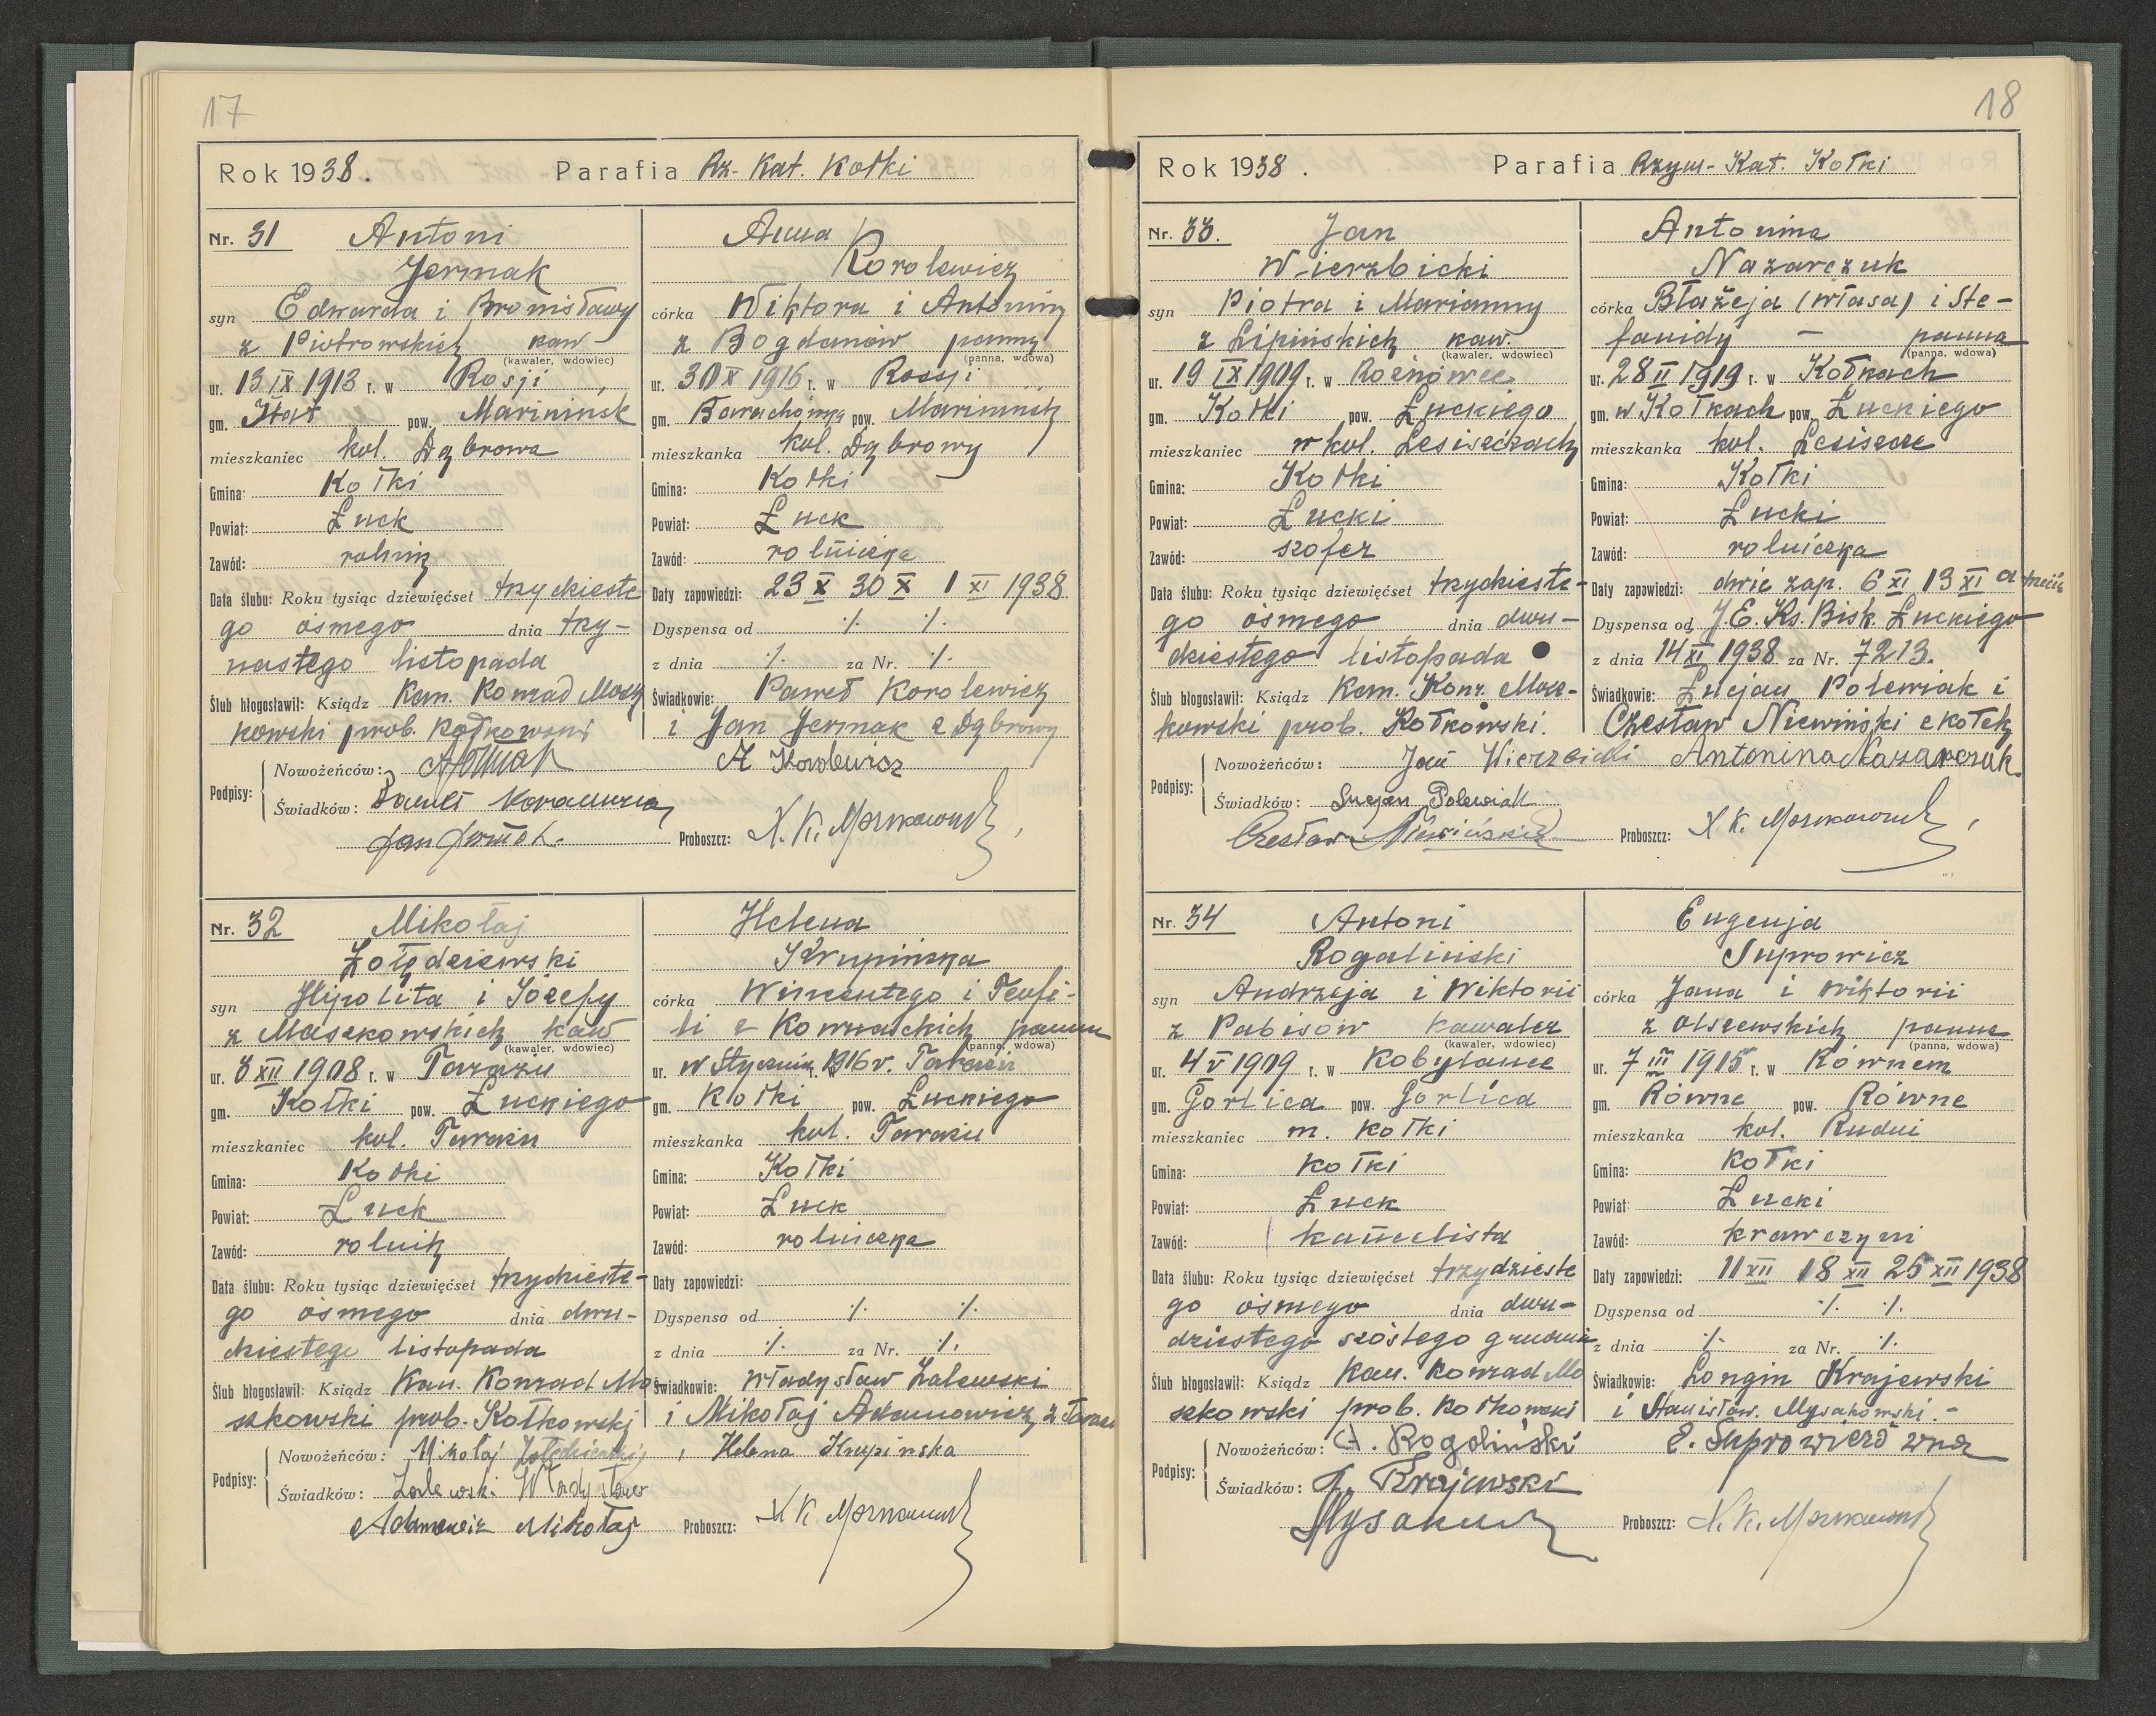 17
Rok 1938. Parafia Rz.-Kat. Kołki
Nr. 31 Antoni
Jermak
syn Edwarda i Bronisławy
z Piotrowskich kaw
(kawaler, wdowiec)
ur. 13 IX 1913 r. w Rosji,
gm. Itat pow. Marininsk
mieszkaniec kol. Dąbrowa
Gmina: Kołki
Powiat: Łuck
Zawód: rolnik
Data ślubu: Roku tysiąc dziewięćset trzydzieste
go ósmego dnia trzy-
nastego listopada
Ślub błogosławił: Ksiądz Kan. Konrad Mosz
kowski prob. Kołkowski
Anna
Korolewicz
córka Wiktora i Antoniny
z Bogdanów panny
(panna, wdowa)
ur. 30 X 1916 r. w Rosji
gm. pow. Marininsk
mieszkanka kol. Dąbrowy
Gmina: Kołki
Powiat: Łuck
Zawód: rolniczka
Daty zapowiedzi: 23 X 30 X 1 XI 1938
Dyspensa od ./. ./.
z dnia ./. za Nr. ./.
Świadkowie: Paweł Korolewicz
i Jan Jermak z Dąbrowy
Podpisy: Nowożeńców: A Korolewicz
Świadków:
Jan Jermak. Proboszcz: X. K. Moszkowski
Nr. 32 Mikołaj
Żołędziewski
syn Hipolita i Józefy
z Maszkowskich kaw
(kawaler, wdowiec)
ur. 8 XII 1908 r. w Tarażu
gm. Kołki pow. Łuckiego
mieszkaniec kol. Tarażu
Gmina: Kołki
Powiat: Łuck
Zawód: rolnik
Data ślubu: Roku tysiąc dziewięćset trzydzieste-
go ósmego dnia dwu-
dziestego listopada
Ślub błogosławił: Ksiądz Kan. Konrad Mo-
szkowski prob. Kołkowski
Helena
Krupińska
córka Wincentego i Teofi-
li z Kownackich panna
(panna, wdowa)
ur. w Styczniu 1916 r. w
gm. Kołki pow. Łuckiego
mieszkanka kol. Tarażu
Gmina: Kołki
Powiat: Łuck
Zawód: rolniczka
Daty zapowiedzi:
Dyspensa od ./. ./.
z dnia ./. za Nr. ./.
Świadkowie: Władysław Zalewski
i Mikołaj Adamowicz z Taraża
Podpisy: Nowożeńców: Mikołaj Żołędziewski, Helena Krupinska
Świadków: Zalewski Władysław
Adamowicz Mikołaj Proboszcz: X K. Moszkowski
18
Rok 1938. Parafia Rzym-Kat. Kołki
Nr. 33. Jan
Wierzbicki
syn Piotra i Marianny
z Lipińskich kaw.
(kawaler, wdowiec)
ur. 19 IX 1909 r. w
gm. Kołki pow. Łuckiego
mieszkaniec w kol. Lesiszczach
Gmina: Kołki
Powiat: Łucki
Zawód: szofer
Data ślubu: Roku tysiąc dziewięćset trzydzieste-
go ósmego dnia dwu-
dziestego listopada
Ślub błogosławił: Ksiądz Kan. Konr. Mosz-
kowski prob. Kołkowski.
Antonina
Nazarczuk
córka Błażeja (Własa) i Ste-
fanidy – panna
(panna, wdowa)
ur. 28 II 1919 r. w Kołkach
gm. w Kołkach pow. Łuckiego
mieszkanka kol. Lesiszcze
Gmina: Kołki
Powiat: Łucki
Zawód: rolniczka
Daty zapowiedzi: dwie zap. 6 XI 13 XI a trzecia
Dyspensa od J. E. Ks. Bisk. Łuckiego
z dnia 14 XI 1938 za Nr. 7213.
Świadkowie: Łucjan Polewiak i
Czesław Niewiński z Kołek
Podpisy: Nowożeńców: Jan Wierzbicki Antonina Nazarczuk.
Świadków: Lucjan Polewiak
Czesław Niewiński Proboszcz: X K. Moszkowski
Nr. 34 Antoni
Rogaliński
syn Andrzeja i Wiktorii
z Pabisów kawaler
(kawaler, wdowiec)
ur. 4 V 1909 r. w Kobylance
gm. Gorlica pow. Gorlica
mieszkaniec m. Kołki
Gmina: Kołki
Powiat: Łuck
Zawód:
Data ślubu: Roku tysiąc dziewięćset trzydzieste
go ósmego dnia dwu-
dziestego szóstego grudnia
Ślub błogosławił: Ksiądz Kan. Konrad Mo
szkowski prob. Kołkowski
Eugenja
Suprowicz
córka Jana i Wiktorii
z Olszewskich panna
(panna, wdowa)
ur. 7 III 1915 r. w Równem
gm. Równe pow. Równe
mieszkanka kol. Rudni
Gmina: Kołki
Powiat: Łucki
Zawód: krawczyni
Daty zapowiedzi: 11 XII 18 XII 25 XII 1938
Dyspensa od ./. ./.
z dnia ./. za Nr. ./.
Świadkowie: Longin Krajewski
i Stanisław Mysakowski.-
Podpisy: Nowożeńców: A. Rogaliński E. Suprowiczówna
Świadków: Ł. Krajewski
Proboszcz: X. K. Moszkowski